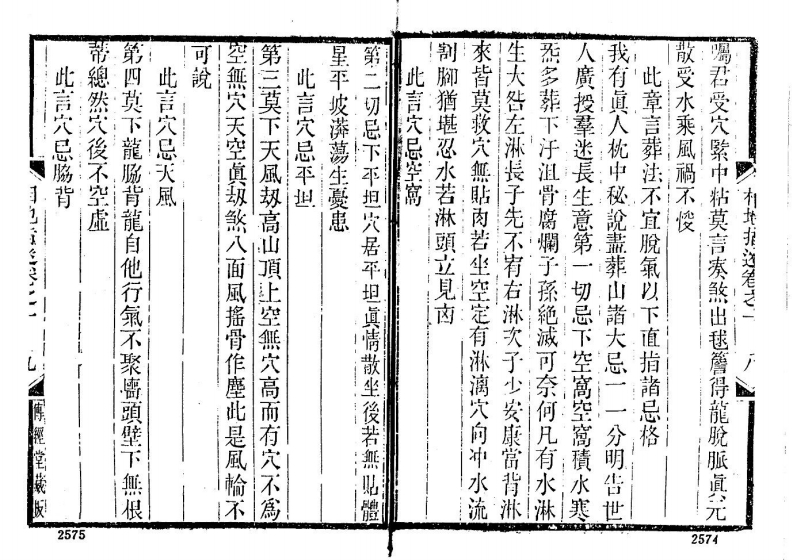 囑君受穴緊中粘莫言奏煞出毬簷得龍脫脈真元
散受水乘風禍不悛
此章言葬法不宜脫氣以下直指諸忌格
我有眞人枕中秘說盡葬山諸大忌一一分明告世
人廣授羣迷長生意第一切忌下空窩空窩積水寒
炁多葬下汙沮骨腐爛子孫絶滅可奈何凡有水淋
生大咎左淋長子先不宥右淋次子少安康當背淋
來皆莫救穴無貼肉若坐空定有淋漓穴向冲水流
割腳猶堪忍水若淋頭立見凶
此言穴忌空窩
相地指迷卷之一
八
2574
第二切忌下平坦穴居平坦眞情散坐後若無貼體
星平坡漭蕩生憂患
此言穴忌平坦
第三莫下天風劫高山頂上空無穴高而有穴不爲
空無穴天空眞劫煞八面風搖骨作塵此是風輪不
可說
此言穴忌天風
第四莫下龍脇背龍自他行氣不聚巉頭壁下無根
蒂總然穴後不空虛
此言穴忌脇背
相地指迷卷之一
九
傳經堂藏版
2575